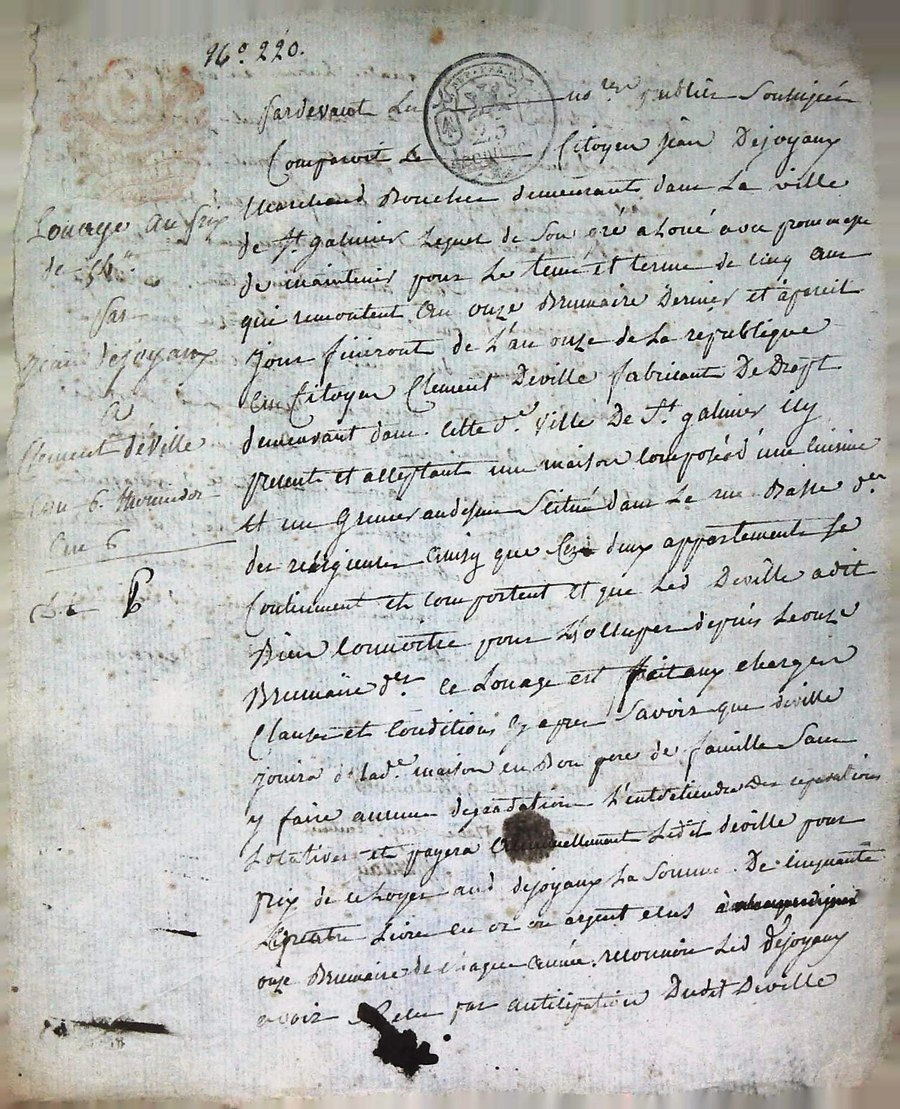 N.º 220.
Pardevant Le no.re publier Soussigné
Comparoit Le Citoyen Jean Dejoyaux
Marchand Boucher demeurant dans La ville
de St galmier Lequel de Son gré a Loué avec promesse
de maintenir pour Le tems et terme de cinq ans
qui remontent au onze Brumaire Dernier et apareil
Jour finiront de L'an onze de La republique
au Citoyen Clement Deville fabricant De Draft
demeurant dans cette d.e Ville De St galmier icy
present et acceptant une maison Composée d'une Cuisine
et un Grenier audessus Scitué dans La rue Basse
des religieuses ainsy que Ces deux appartements Se
Continuent et comportent et que Led Deville a dit
Bien Connoitre pour L'occuper depuis Le onze
Brumaire d.er Ce Louage est fait aux charges
Clauses et Conditions cy apres Savoir que deville
Jouira de Lad.e maison en Bon pere de famille Sans
y faire aucune degradation L'entretiendra des reparations
Locatives et payera annuellement Ledit deville pour
prix de ce Loyer aud dejoyaux La Somme De Cinquante
quatre Livres en or ou argent
onze Brumaire de chaque année. reconnoit Led dejoyaux
avoir Recu par anticipation Dudit Deville
Louage au prix
de 54.ll
Par
Jean Dejoyaux
a
Clement deville
6. thermidor
an 6